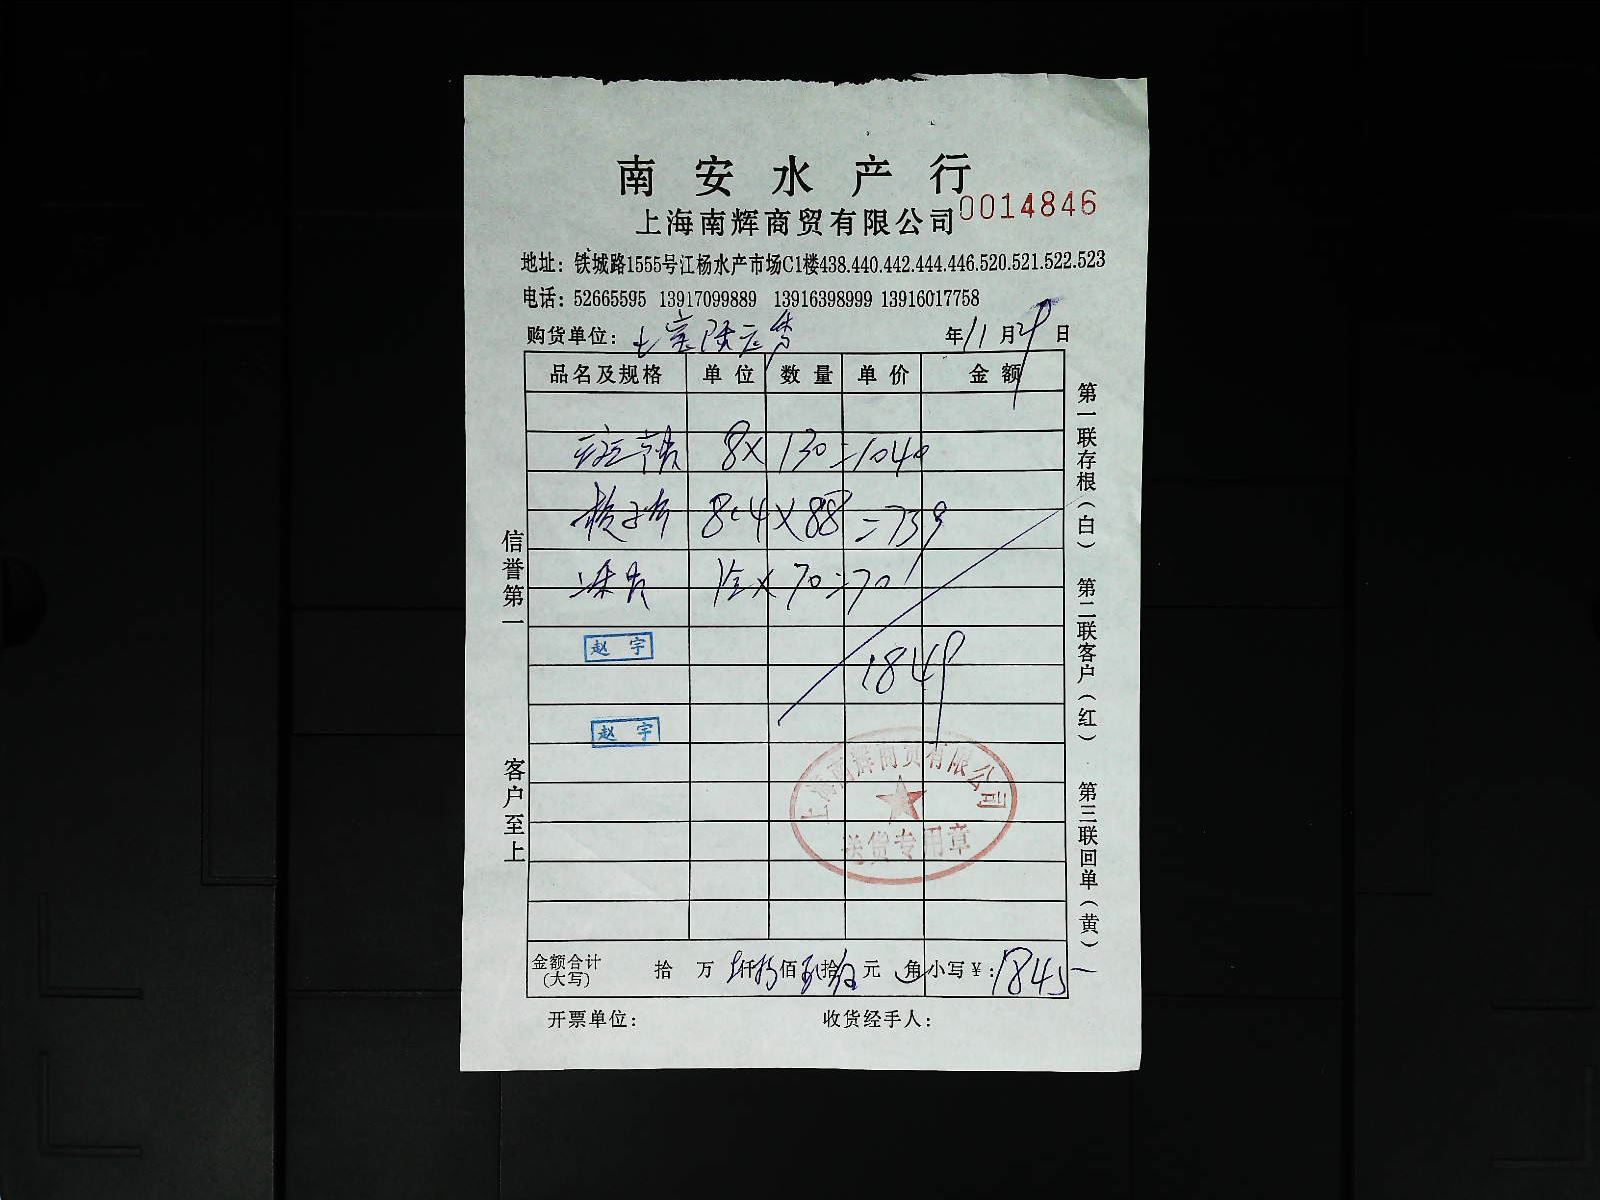 南安水产行
上海南辉商贸有限公司 0014846
地址：铁城路1555号江杨水产市场C1楼438.440.442.444.446.520.521.522.523
电话：52665595 13917099889 13916398999 13916017758
购货单位： 年11月29日
品名及规格 单位 数量 单价 金额
8× 130=1040
8.4×88=739
×70=70
赵宇
1849
赵宇
上海南辉商贸有限公司
送货专用章
金额合计(大写) 拾 万 仟 佰 拾 元 角 小写￥：1845-
开票单位： 收货经手人：
信誉第一 客户至上
第一联存根（白） 第二联客户（红） 第三联回单（黄）